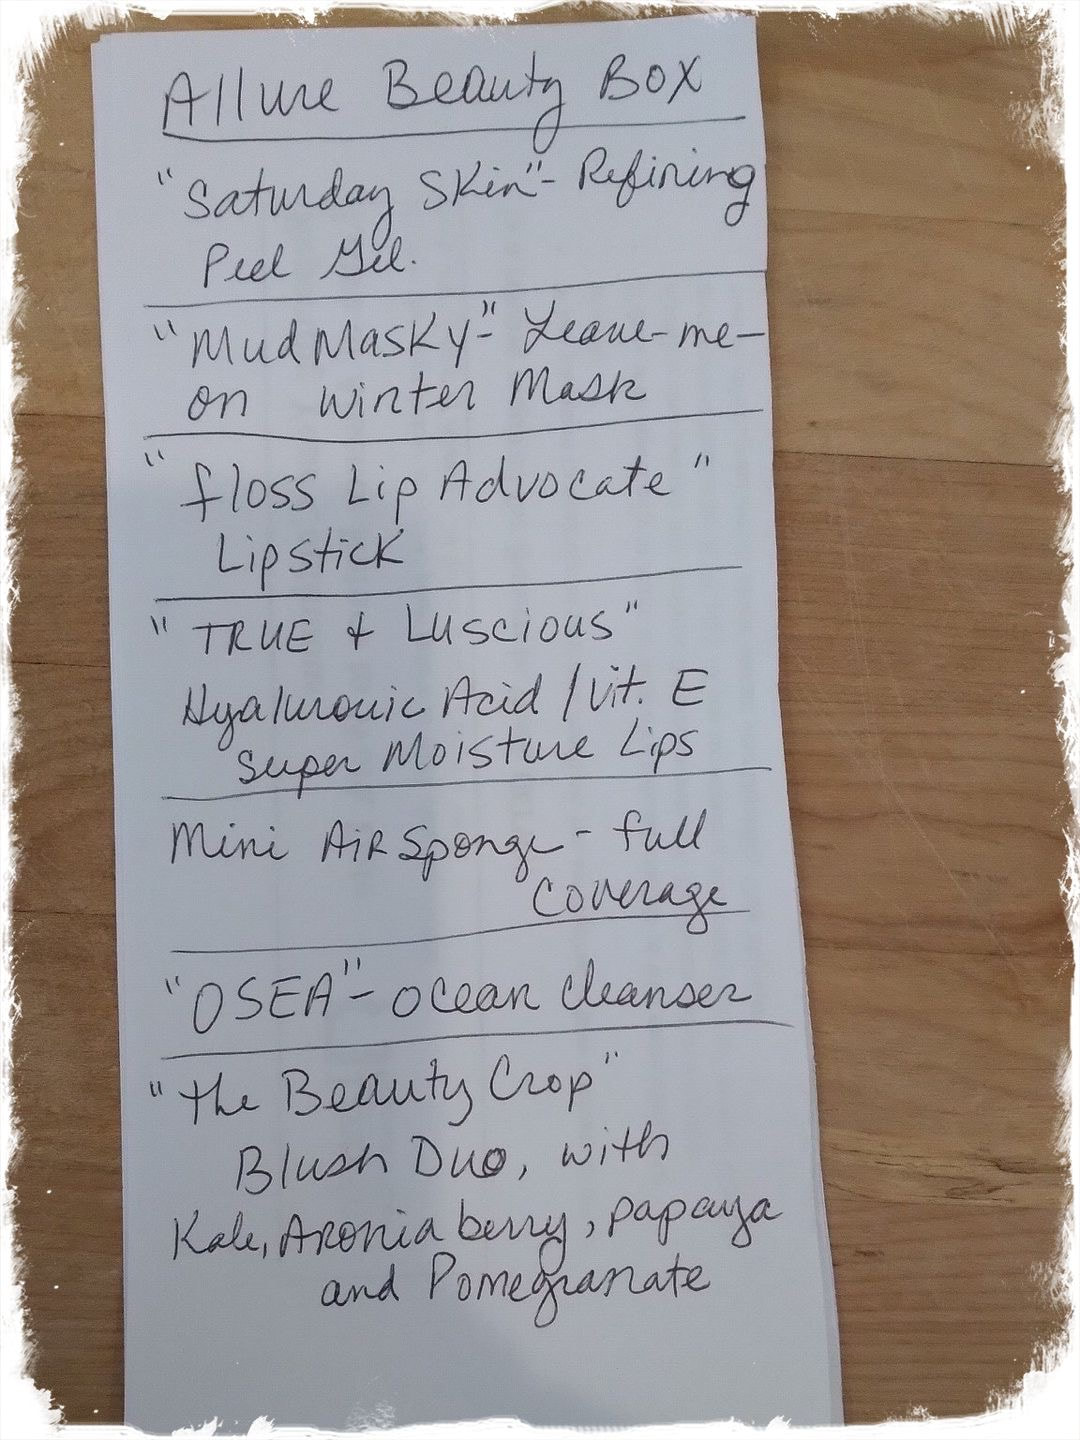 Allure Beauty Box
"Saturday Skin"- Refining
Peel Gel.
"MudMasky"- Leave-me-
on Winter Mask
"floss Lip Advocate"
Lipstick
"TRUE + Luscious"
Hyaluronic Acid / Vit. E
Super Moisture Lips
Mini AirSponge - full
Coverage
"OSEA"- Ocean Cleanser
"the Beauty Crop"
Blush Duo, with
Kale, Aronia berry, papaya
and Pomegranate